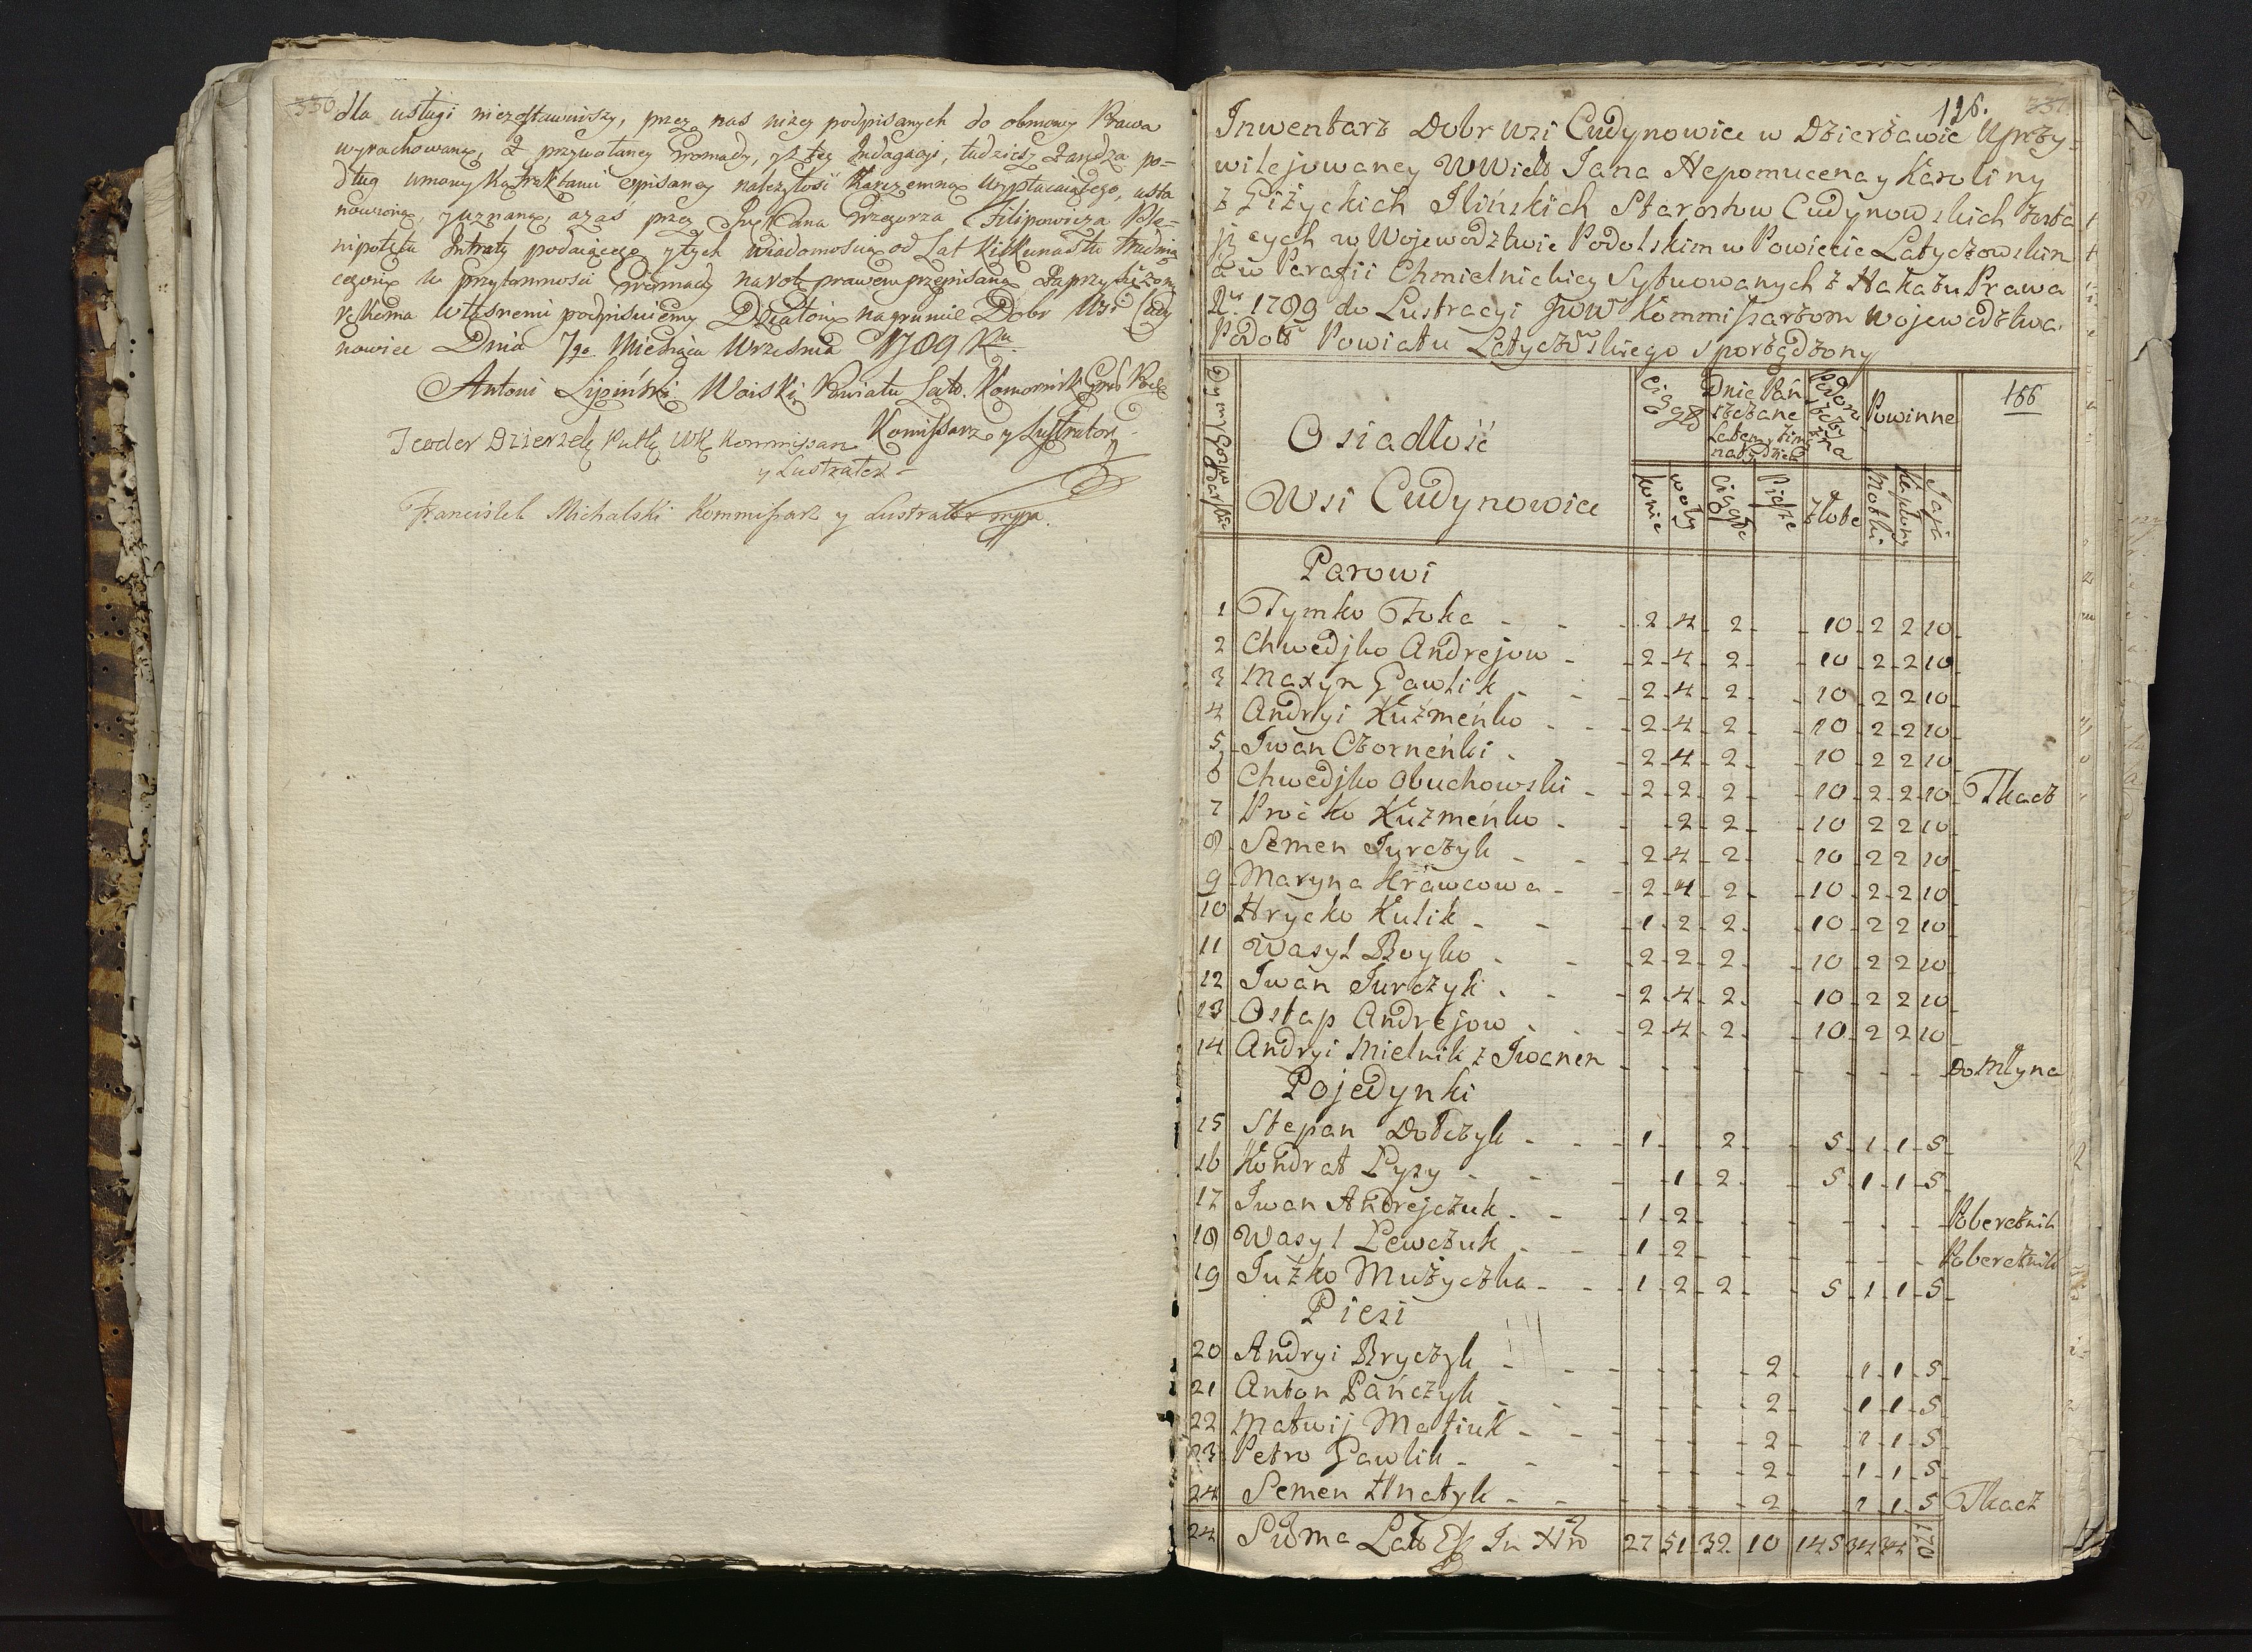 330
dla usługi niezostawuiszy, przez nas niżey podpisanych do obmowy Prawa
wyrachowaną, z przywołaney Gromady, y z tey Indagacyi, tudziesz Zandza po-
dług umowy Kątraktami opisaney należytości Karczemną wypłacaiącego, usta
nowioną, y uznaną, a zaś przez Grzegorza Filipowicza Ple-
nipotęta Intratę podaiącego y tych wiadomością od Lat Kilkunastu trudnią
cego w przytomności Gromady na rotę prawem przepisaną zaprzysiężoną
rękoma własnemi podpisuiemy Działoną na gruncie Dobr Wsi Cudy
nowiec Dnia 7go Miesiąca Września 1789 Ru
Antoni Lipiński Woiski Powiatu Lat. Komornik Grod
Komissarz y Lustrator
Teodor Dzierżek Kommissarz
y Lustrator
Franciszek Michalski Kommissarz y Lustrator mpp.
126.
337
Inwentarz Dobr Wsi Cudynowiec w Dzierżawie Uprzy-
wilejowaney WWielb Jana Nepomucena y Karoliny
z Giżyckich Ilińskich Starostow Cudynowskich zosta
jących w Wojewodztwie Podolskim w Powiecie Latyczowskim
a w Parafii Chmielnickiey Sytuowanych z Nakazu Prawa
Ru. 1789 do Lustracyi JWW Kommissarzom Wojewodztwa
Podolo Powiatu Latyczowskiego sporządzony
Dymy Gospodarskie
Osiadłość
Wsi Cudynowiec
Ciągło
Dnie Pań
szczane
Latem y Zimą
na Tydzień
Powinne
166
konie
woły
Ciągłe
Piesze
złote
Motki
Kapłony
Jaja
Parowi
1 Tymko Foka 2 4 2 10 2 2 10
2 Chwedjko Andrejow 2 4 2 10 2 2 10
3 Maxym Gawlik 2 4 2 10 2 2 10
4 Andryi Kuzmeńko 2 4 2 10 2 2 10
5 Jwan Czorneńki 2 4 2 10 2 2 10
6 Chwedjko Obuchowski 2 2 2 10 2 2 10 Tkacz
7 Proćko Kuzmeńko 2 2 10 2 2 10
8 Semen Jurczyk 2 4 2 10 2 2 10
9 Maryna Krawcowa 2 4 2 10 2 2 10
10 Hrycko Kulik 1 2 2 10 2 2 10
11 Wasyl Boyko 2 2 2 10 2 2 10
12 Jwan Jurczyk 2 4 2 10 2 2 10
13 Ostap Andrejow 2 4 2 10 2 2 10
14 Andryi Mielnik z Jwanem Do Młyna
Pojedynki
15 Stepan Dobczyk 1 2 5 1 1 5
16 Kondrat Łysy 1 2 5 1 1 5
17 Jwan Andrejczuk 1 2 Pobereznik
18 Wasyl Lewczuk 1 2 Pobereznik
19 Juzko Muzyczka 1 2 2 5 1 1 5
Piesi
20 Andryi Bryczyk 2 1 1 5
21 Anton Pańczyk 2 1 1 5
22 Matwij Matiuk 2 1 1 5
23 Petro Gawlik 2 1 1 5
24 Semen Hnatyk 2 1 1 5 Tkacz
24 Suma 27 51 32 10 145 34 34 170